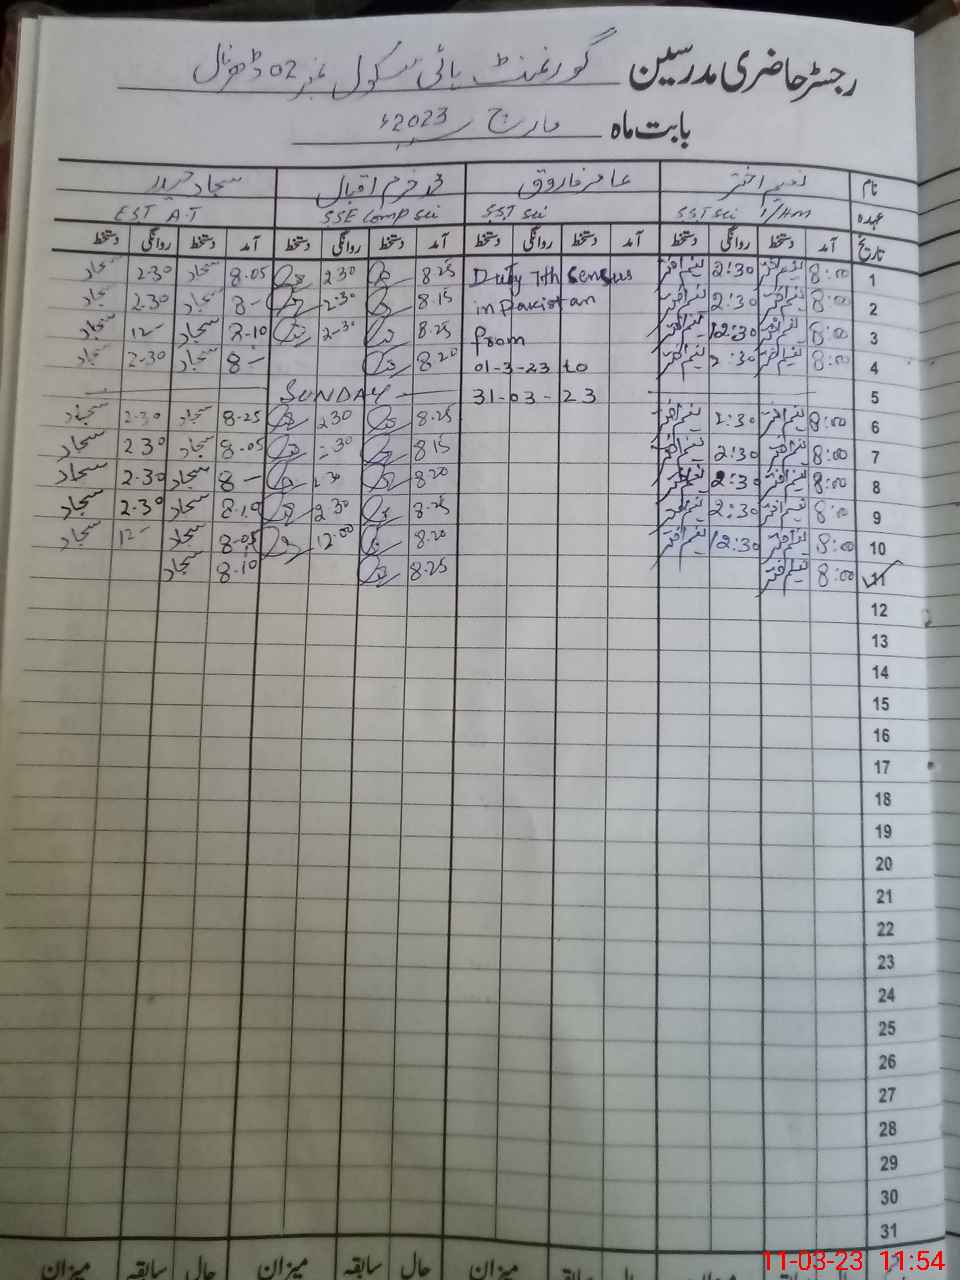 رجسٹر حاضری مدرسین گورنمنٹ ہائی سکول نمبر 02 ڈھرنال
بابت ماہ مارچ 2023ء
نام نعیم اختر عامر فاروق محمد خرم اقبال سجاد حیدر
عہدہ SST Sci I/HM SST Sci SSE Comp Sci EST A.T
تاریخ آمد دستخط روانگی دستخط آمد دستخط روانگی دستخط آمد دستخط روانگی دستخط آمد دستخط روانگی دستخط
1 8:00 نعیم اختر 2:30 نعیم اختر Duty 7th Census 8.25 2.30 8.05 سجاد 2.30 سجاد
2 8:00 نعیم اختر 2:30 نعیم اختر in Pakistan 8.15 2.30 8- سجاد 2.30 سجاد
3 8:00 نعیم اختر 12:30 نعیم اختر from 8.25 2-30 8-10 سجاد 12- سجاد
4 8:00 نعیم اختر 2:30 نعیم اختر 01-3-23 to 8.20 8- سجاد 2-30 سجاد
5 31-03-23 SUNDAY
6 8:00 نعیم اختر 2:30 نعیم اختر 8.25 2.30 8-25 سجاد 2-30 سجاد
7 8:00 نعیم اختر 2:30 نعیم اختر 8.15 8-05 سجاد 2.30 سجاد
8 8:00 نعیم اختر 2:30 نعیم اختر 8.20 8- سجاد 2.30 سجاد
9 8:00 نعیم اختر 2:30 نعیم اختر 8.25 2.30 8.10 سجاد 2.30 سجاد
10 8:00 نعیم اختر 12:30 نعیم اختر 8.20 12.00 8.05 سجاد 12- سجاد
11 8:00 نعیم اختر 8.25 8.10 سجاد
12
13
14
15
16
17
18
19
20
21
22
23
24
25
26
27
28
29
30
31
حال سابقہ میزان حال سابقہ میزان حال سابقہ میزان
11-03-23 11:54